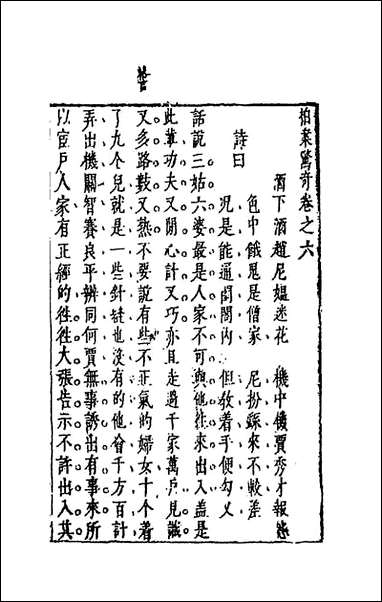 拍案驚奇卷之六
酒下酒趙尼媼迷花　機中機賈秀才報怨
詩曰
色中餓鬼是僧家　尼扮繇來不較差
況是能通閨閣內　但教着手便勾叉
話說三姑六婆最是人家不可與他往來出入盖是
此輩功夫又閒心計又巧亦且走過千家萬戶見識
又多路數又熟不要說有些不正氣的婦女十個着
了九个兒就是一些針縫也沒有的他會千方百計
弄出機關智賽良平辨同何賈無事誘出有事來所
以宦戶人家有正經的徃徃大張告示不許出入其